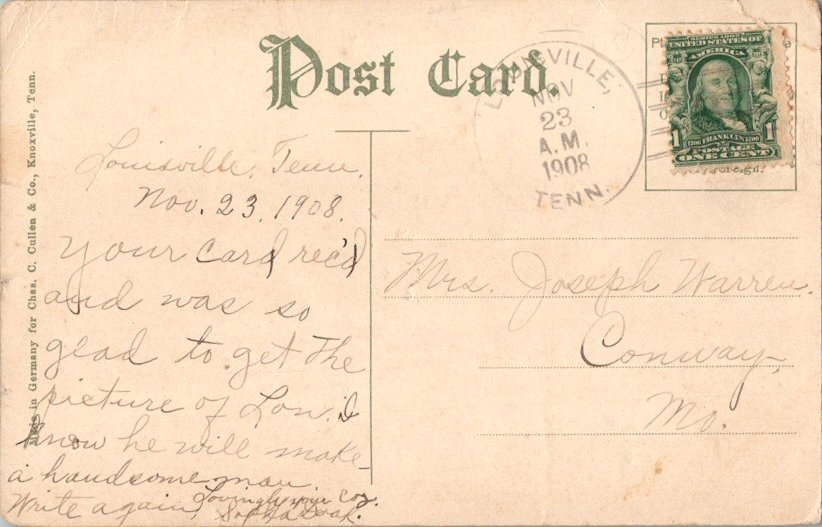 Post Card.
LOUISVILLE,
NOV
23
A.M.
1908
TENN.
UNITED STATES OF
AMERICA
1 1706 FRANKLIN 1790 1
POSTAGE
ONE CENT
Made in Germany for Chas. C. Cullen & Co., Knoxville, Tenn.
Louisville, Tenn.
Nov. 23, 1908.
Your card rec'd
and was so
glad to get the
picture of Lon. I
know he will make
a handsome man.
Write again, Lovingly your Coz.
Mrs. Joseph Warren.
Conway,
Mo.